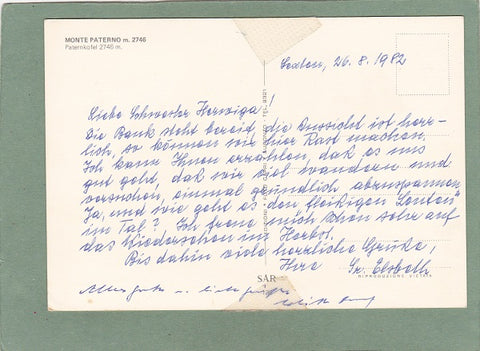 MONTE PATERNO m. 2746
Paternkofel 2746 m.
Sexten, 26.8.1982
Liebe Schwester Herwiga!
Die Bank steht bereit, die Aussicht ist herr-
lich, so können wir hier Rast machen.
Ich kann Ihnen erzählen, daß es uns
gut geht, daß wir viel wandern und
versuchen, einmal gründlich abzuspannen.
Ja, und wie geht es "den fleißigen Leuten"
im Tal? Ich freue mich schon sehr auf
das Wiedersehen im Herbst.
Bis dahin viele herzliche Grüße,
Ihre Sr. Elsbeth
SAR
RIPRODUZIONE VIETATA
Alles Gute u. liebe Grüße